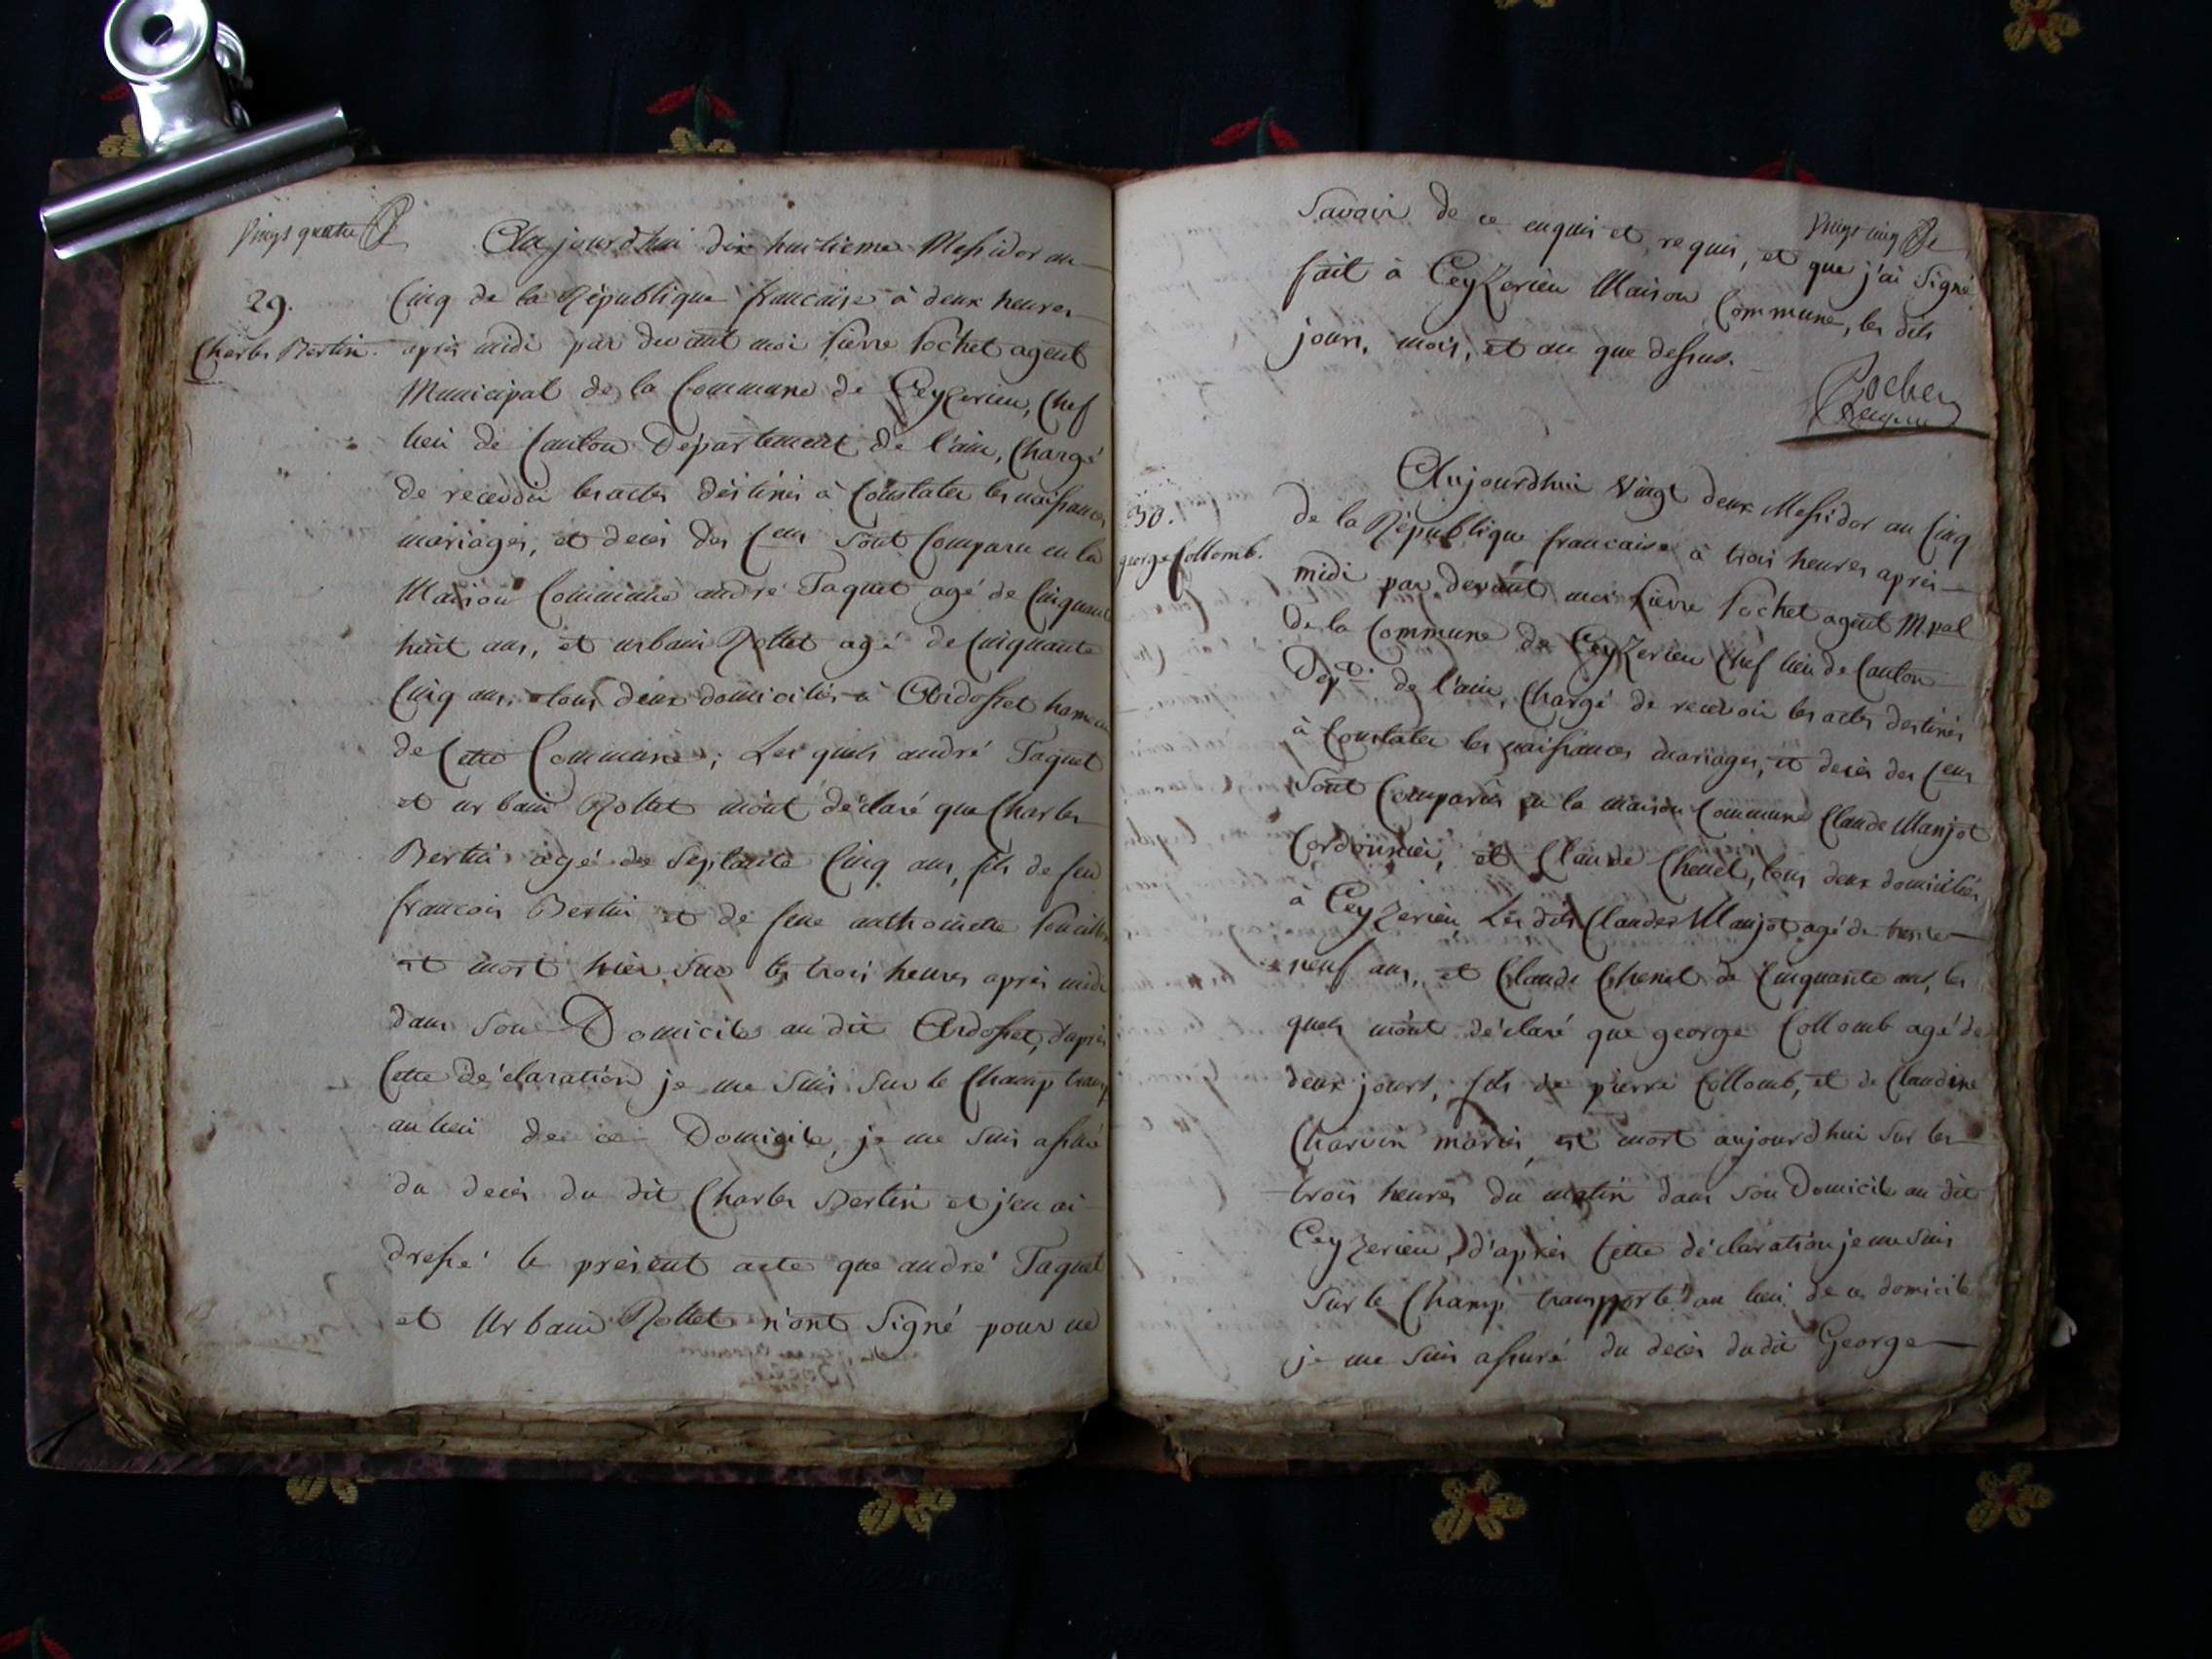 Vingt quatre
Aujourd'hui dix huitieme Messidor an
29.
Cinq de la République francaise à deux heures
Charles Bertin.
après midi par devant moi pierre pochet agent
Municipal de la Commune de Ceyzerieu, Chef
lieu de Canton Département de l'ain, Chargé
de recevoir les actes destinés à Constater les naissances
mariages, et deces des Cens sont Comparu en la
Maison Commune andré Taquet agé de Cinquante
huit ans, et urbain Rollet agé de Cinquante
Cinq ans, tous deux domiciliés à Ardosset hameau
de Cette Commune; Les quels andré Taquet
et urbain Rollet m'ont déclaré que Charles
Bertin agé de Septante Cinq ans, fils de feu
francois Bertin et de feue anthoinette
est mort hier sur les trois heures après midi
dans son Domicile au dit Ardosset, d'après
Cette déclaration je me suis sur le Champ transp
au lieu de ce Domicile, je me suis assuré
du deces du dit Charles Bertin et j'en ai
dressé le présent acte que andré Taquet
et Urbain Rollet n'ont Signé pour ne
Vingt cinq
Savoir de ce enquis et requis, et que j'ai Signé
fait à CeyZerieu Maison Commune, les dits
jours, mois, et an que dessus.
Pochet
Aujourdhui Vingt deux Messidor an Cinq
30.
de la République francaise à trois heures après
george Collomb.
midi par devant moi pierre pochet agent Mpal
de la Commune de CeyZerieu Chef lieu de Canton
Dept. de l'ain, Chargé de recevoir les actes destinés
à Constater les naissances mariages, et deces des Cens
Sont Comparus en la maison Commune Claude Manjot
Cordonnier, et Claude Chenel, tous deux domiciliés
à CeyZerieu, Les dits Claude Manjot agé de trente
neuf ans, et Claude Chenel de Cinquante ans, les
quels m'ont déclaré que george Collomb agé de
deux jours, fils de pierre Collomb, et de Claudine
Charvin mariés, est mort aujourdhui sur les
trois heures du matin dans son Domicile au dit
CeyZerieu, d'après Cette déclaration je me suis
sur le Champ transporté au lieu de ce domicile
je me suis assuré du deces dudit George